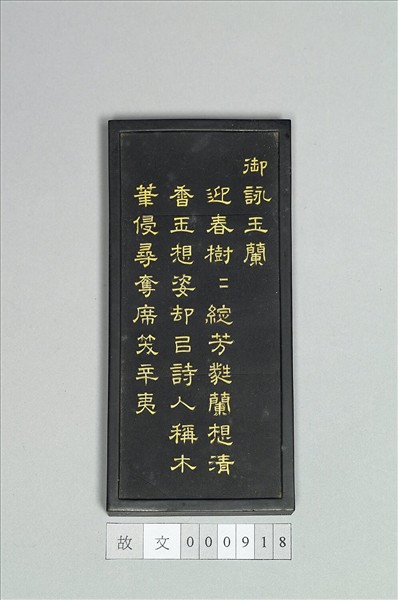 御詠玉蘭
迎春樹〻綻芳蕤蘭想清
香玉想姿却㠯詩人稱木
筆侵尋奪席笑辛夷
故文000918